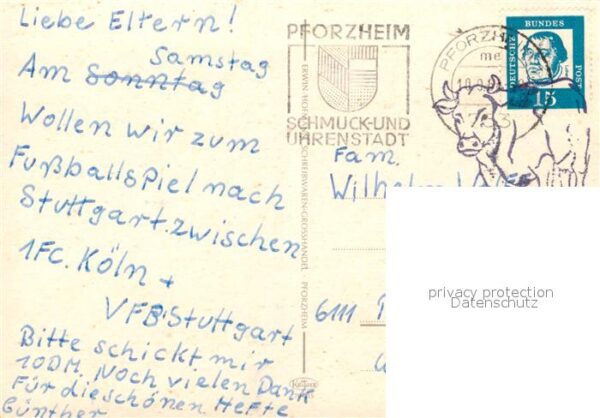 Liebe Eltern!
Samstag
Am Sonntag
Wollen wir zum
Fußballspiel nach
Stuttgart.zwischen
1FC. Köln +
VFB.Stuttgart
Bitte schickt mir
10DM. Noch vielen Dank
Für die schönen Hefte
Günther
PFORZHEIM
SCHMUCK-UND
UHRENSTADT
PFORZH
me
DEUTSCHE
BUNDES
POST
15
ERWIN
SCHREIBWAREN-GROSSHANDEL · PFORZHEIM
Fam.
Wilhelm
6111
privacy protection
Datenschutz